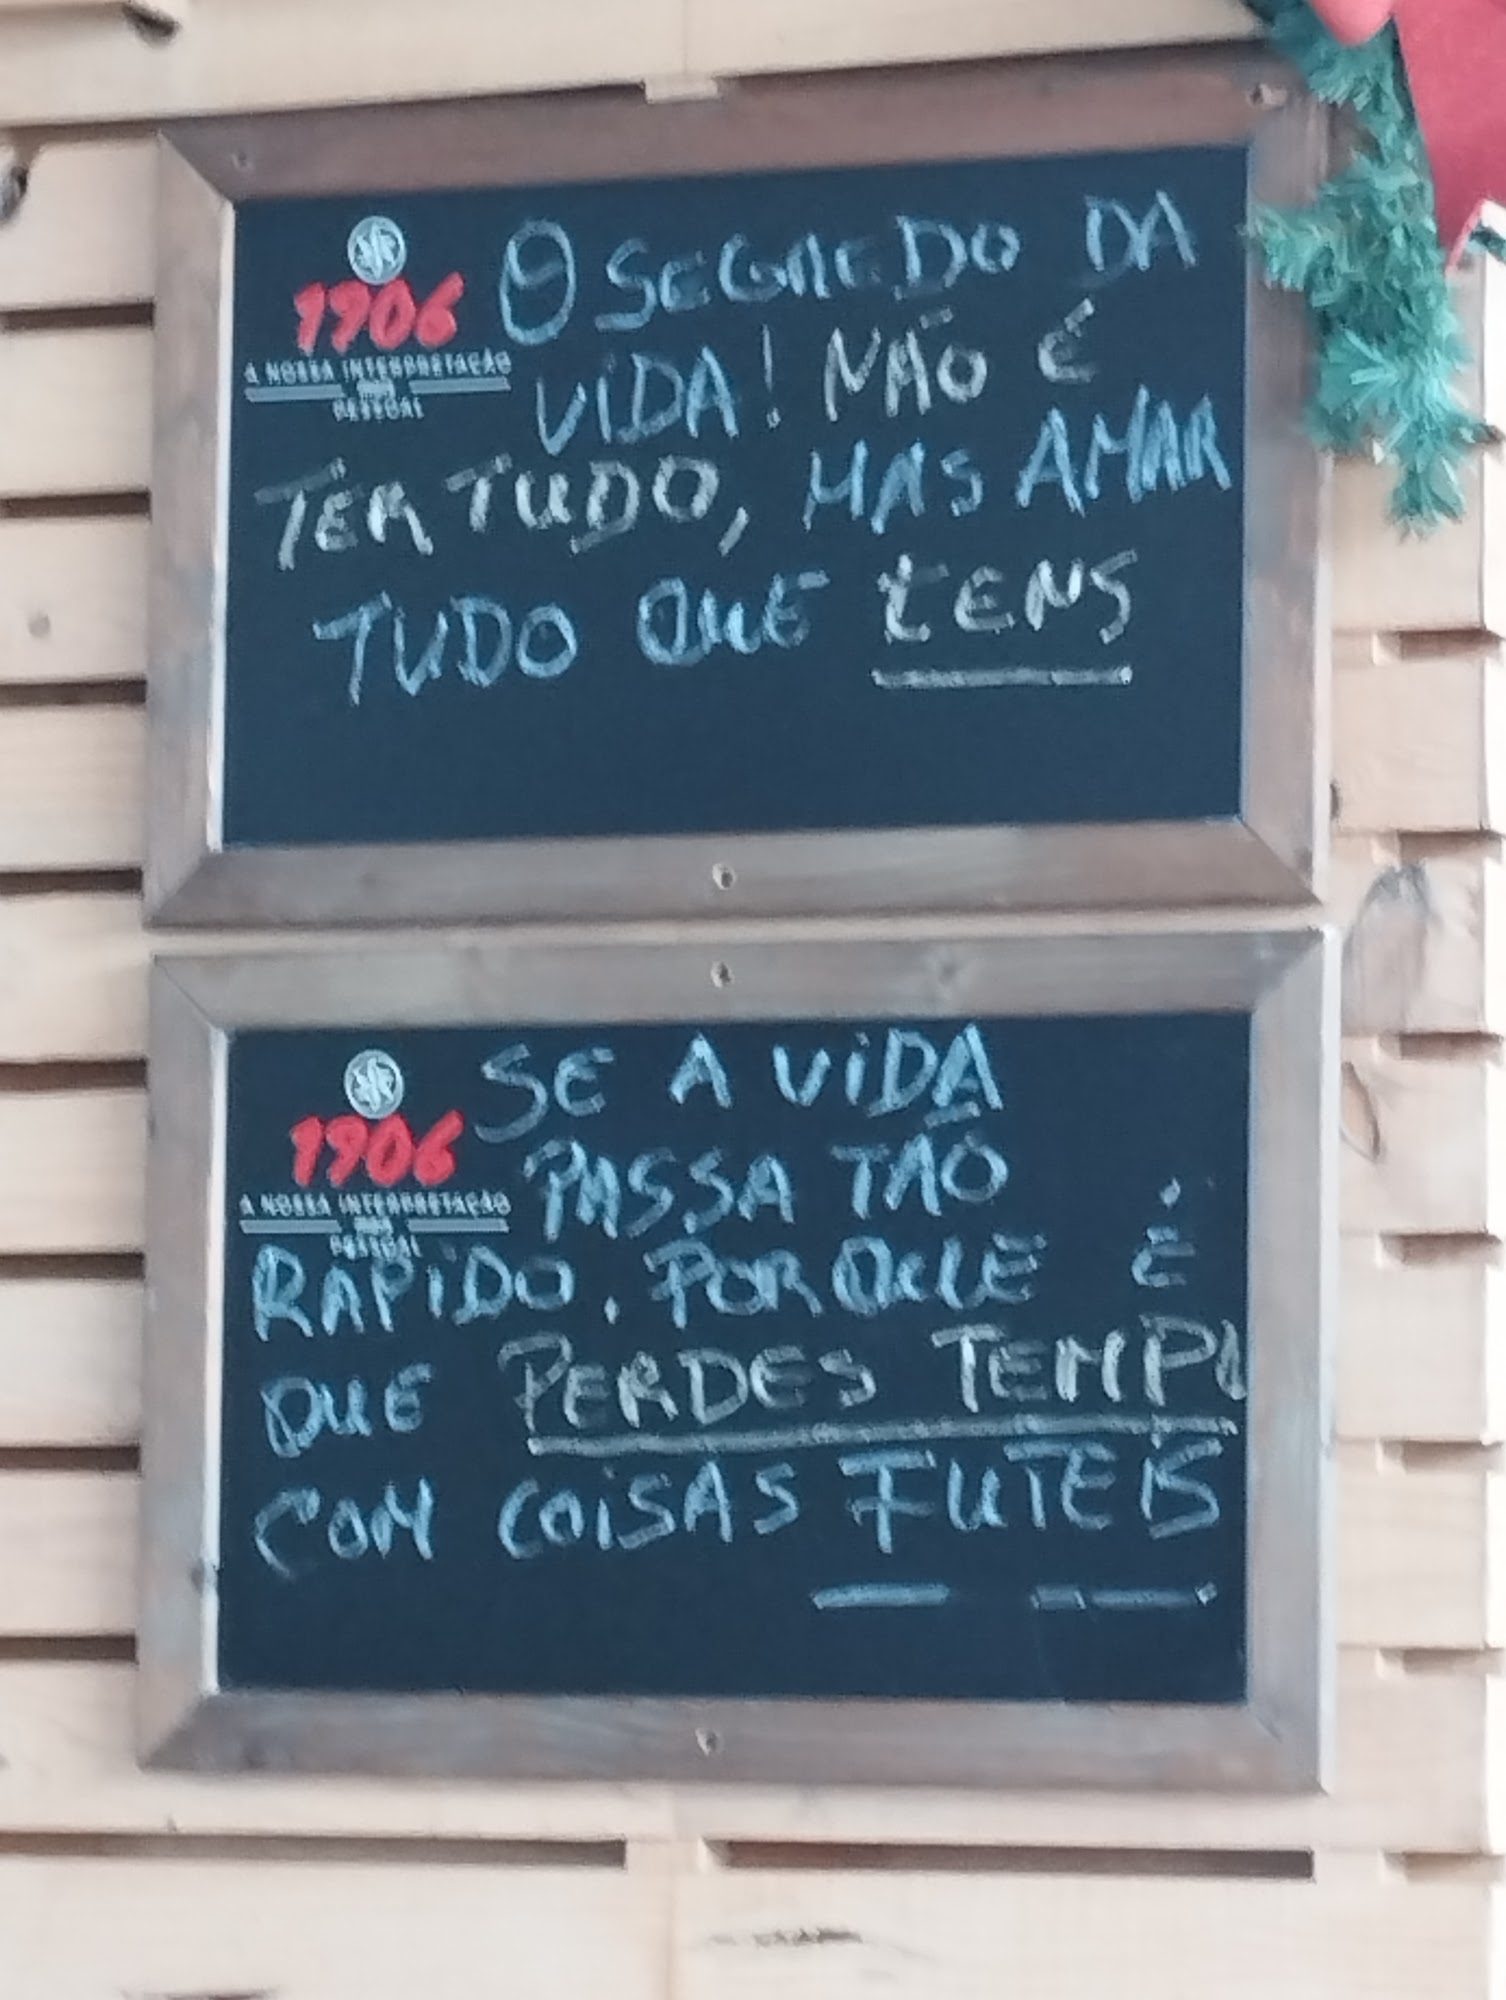 1906
A NOSSA INTERPRETAÇÃO
MAIS
PESSOAL
O SEGREDO DA
VIDA! NÃO É
TER TUDO, MAS AMAR
TUDO QUE tENS
1906
A NOSSA INTERPRETAÇÃO
MAIS
PESSOAL
SE A VIDA
PASSA TÃO
RAPIDO. PORQUE É
QUE PERDES TEMPO
COM COISAS FUTEIS